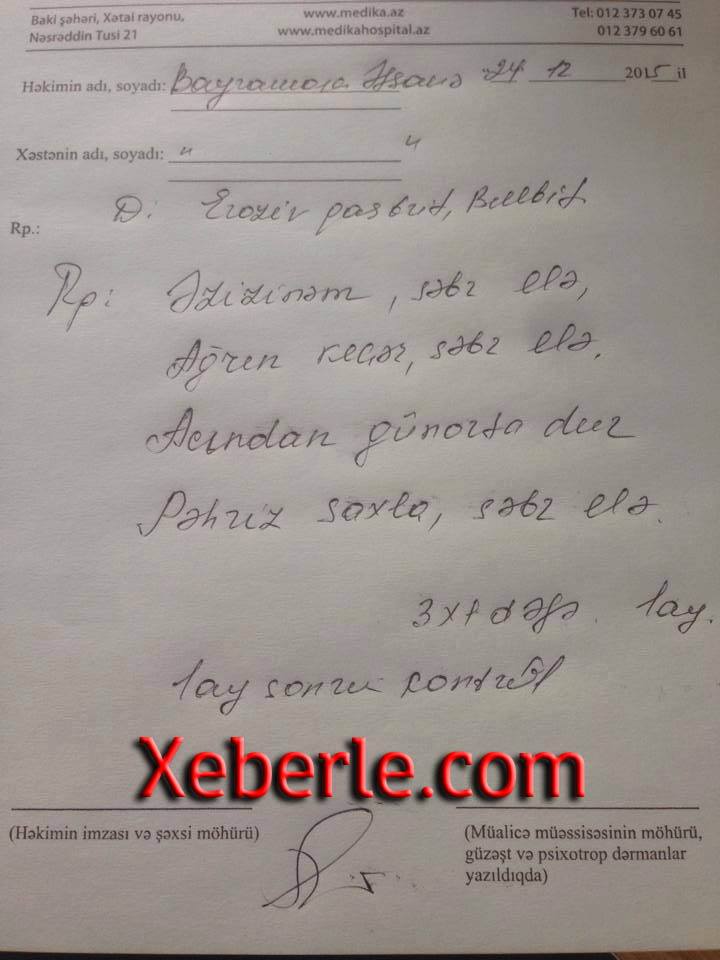 Baki şəhəri, Xətai rayonu,
Nəsrəddin Tusi 21
www.medika.az
www.medikahospital.az
Tel: 012 373 07 45
012 379 60 61
Həkimin adı, soyadı: Bayramova Əfsanə 24 12 2015 il
Xəstənin adı, soyadı: " "
D: Eroziv qastrit, Bulbit
Rp.:
Rp: Əzizinəm, səbr elə,
Ağrın keçər, səbr elə.
Acından günorta dur
Pəhriz saxla, səbr elə.
3x1 dəfə. 1ay.
1ay sonra kontrol
Xeberle.com
(Həkimin imzası və şəxsi möhürü)
(Müalicə müəssisəsinin möhürü,
güzəşt və psixotrop dərmanlar
yazıldıqda)